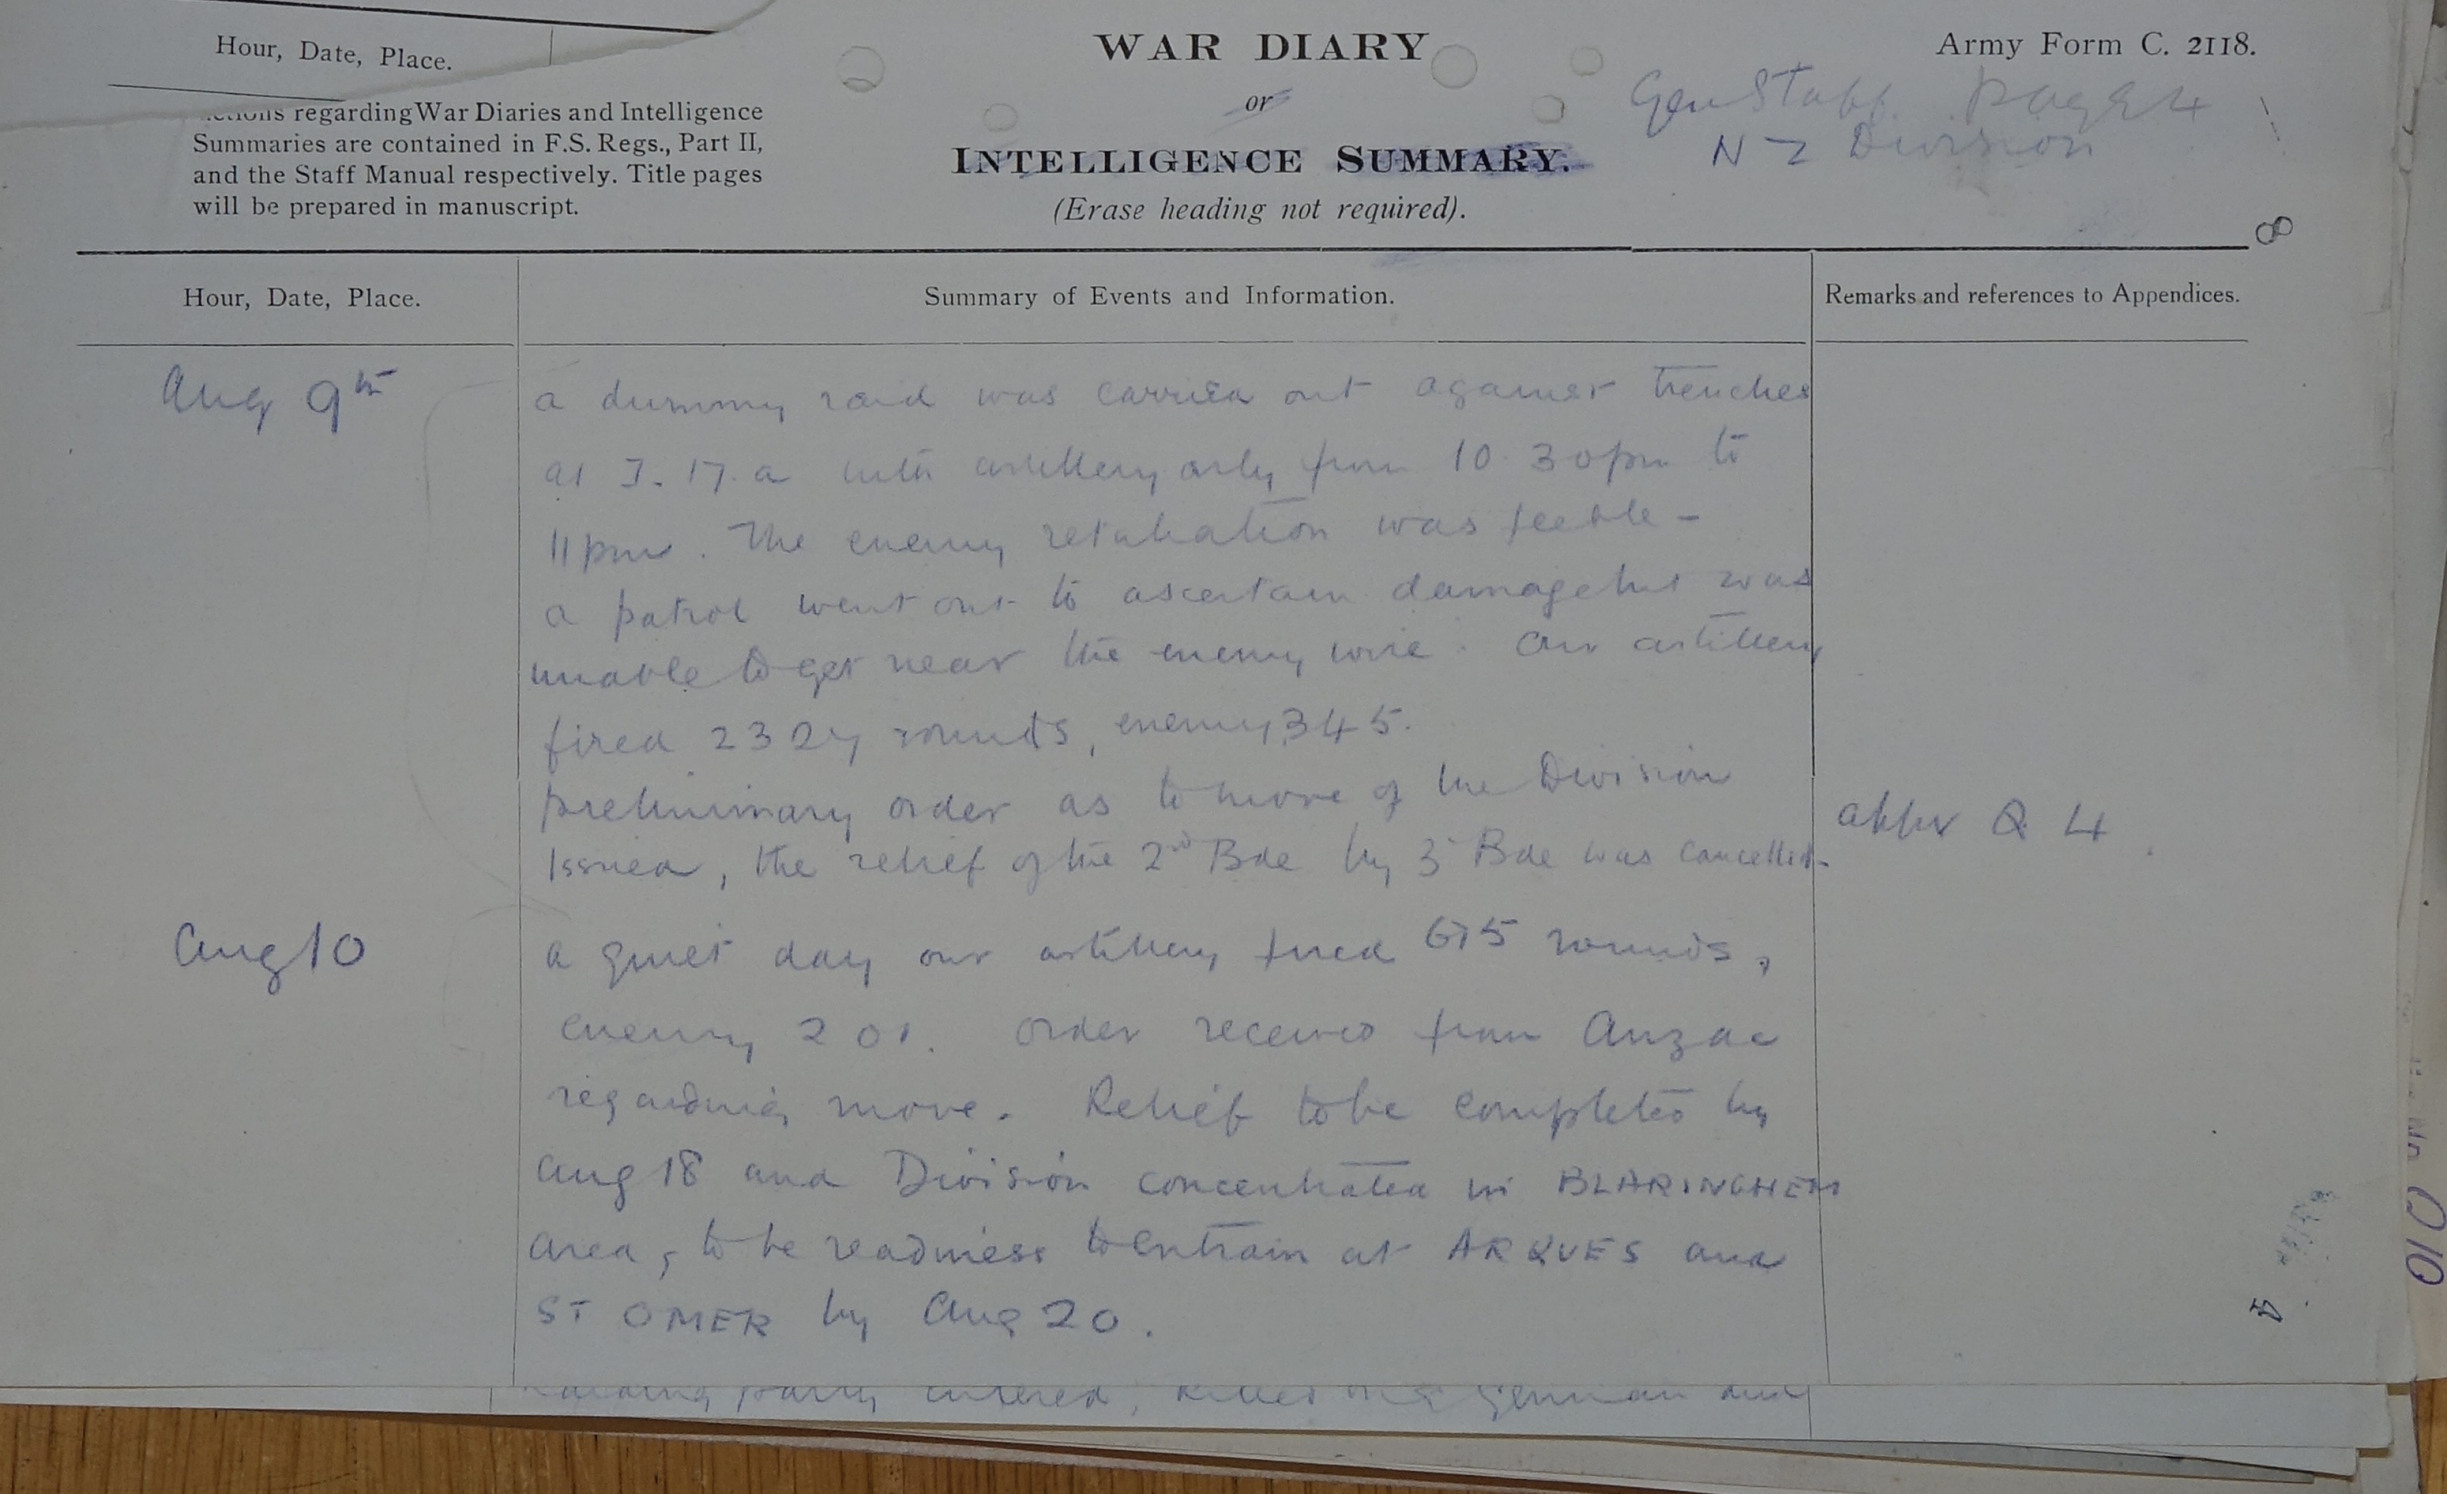 Hour, Date, Place.
WAR DIARY
Army Form C. 2118.
or
Gen Staff page 4
regarding War Diaries and Intelligence
Summaries are contained in F.S. Regs., Part II,
and the Staff Manual respectively. Title pages
will be prepared in manuscript.
INTELLIGENCE SUMMARY.
N Z Division
(Erase heading not required).
8
Hour, Date, Place.
Summary of Events and Information.
Remarks and references to Appendices.
Aug 9th
a dummy raid was carried out against trenches
at I.17.a with artillery only from 10.30pm to
11pm. The enemy retaliation was feeble -
a patrol went out to ascertain damage but was
unable to get near the enemy wire. Our artillery
fired 2324 rounds, enemy 345.
preliminary order as to move of the Division
issued, the relief of the 2nd Bde by 3 Bde was cancelled
Q 4
Aug 10
a quiet day our artillery fired 675 rounds,
enemy 201. Order received from Anzac
regarding move. Relief to be completed by
Aug 18 and Division concentrated in BLARINGHEM
area, to be readiness to entrain at ARQUES and
ST OMER by Aug 20.
raiding party entered, killed one German and